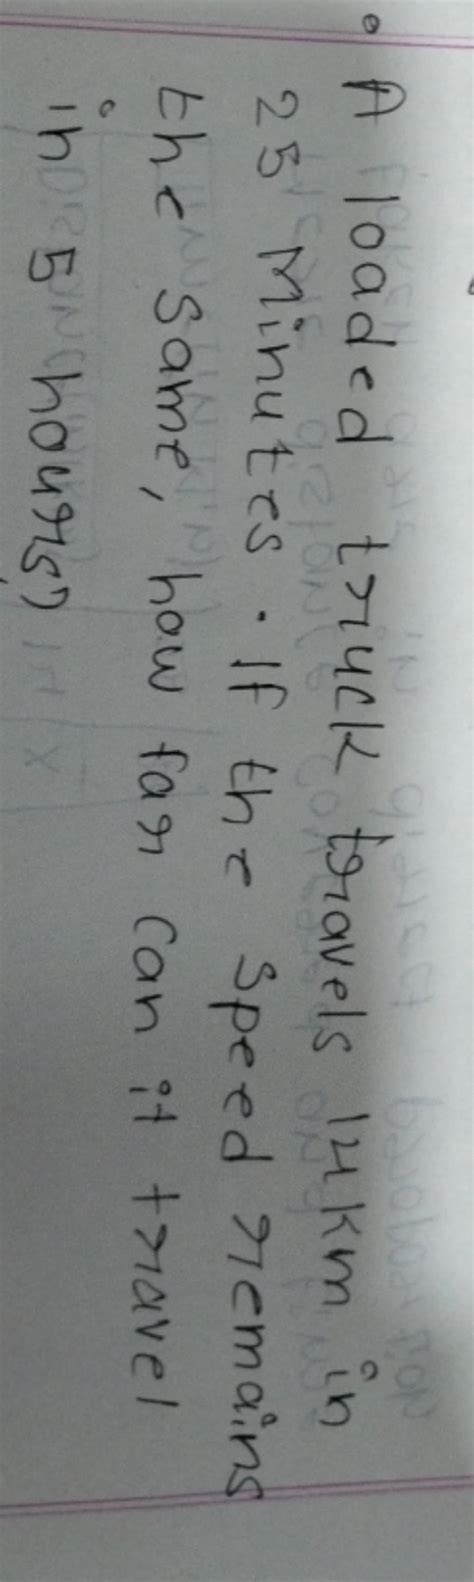 • A loaded truck travels 14km in
25 Minutes. If the Speed remains
the Same, how far can it travel
in 5 hours?